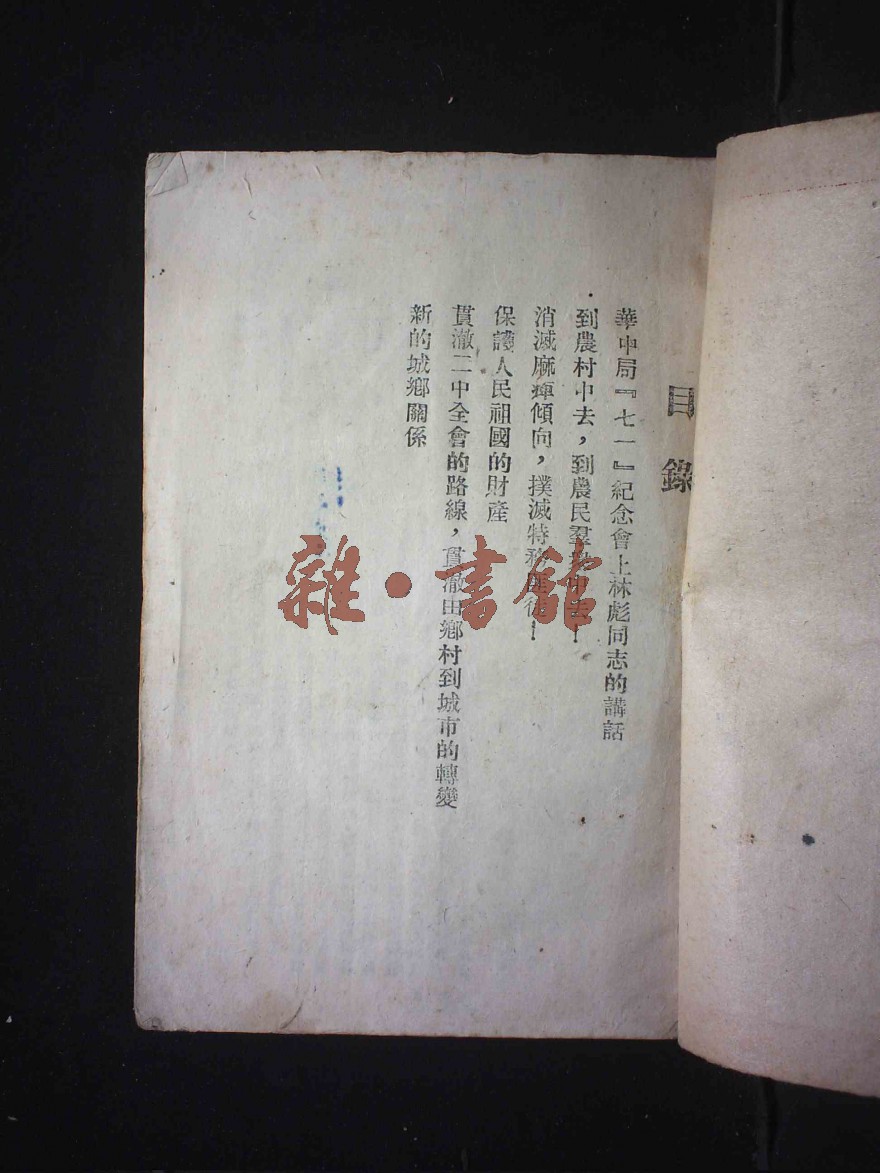 目錄
華中局『七一』紀念會上林彪同志的講話
到農村中去，到農民羣衆中去！
消滅麻痺傾向，撲滅特務匪徒！
保護人民祖國的財產
貫澈二中全會的路線，貫澈由鄉村到城市的轉變
新的城鄉關係
雜·書館